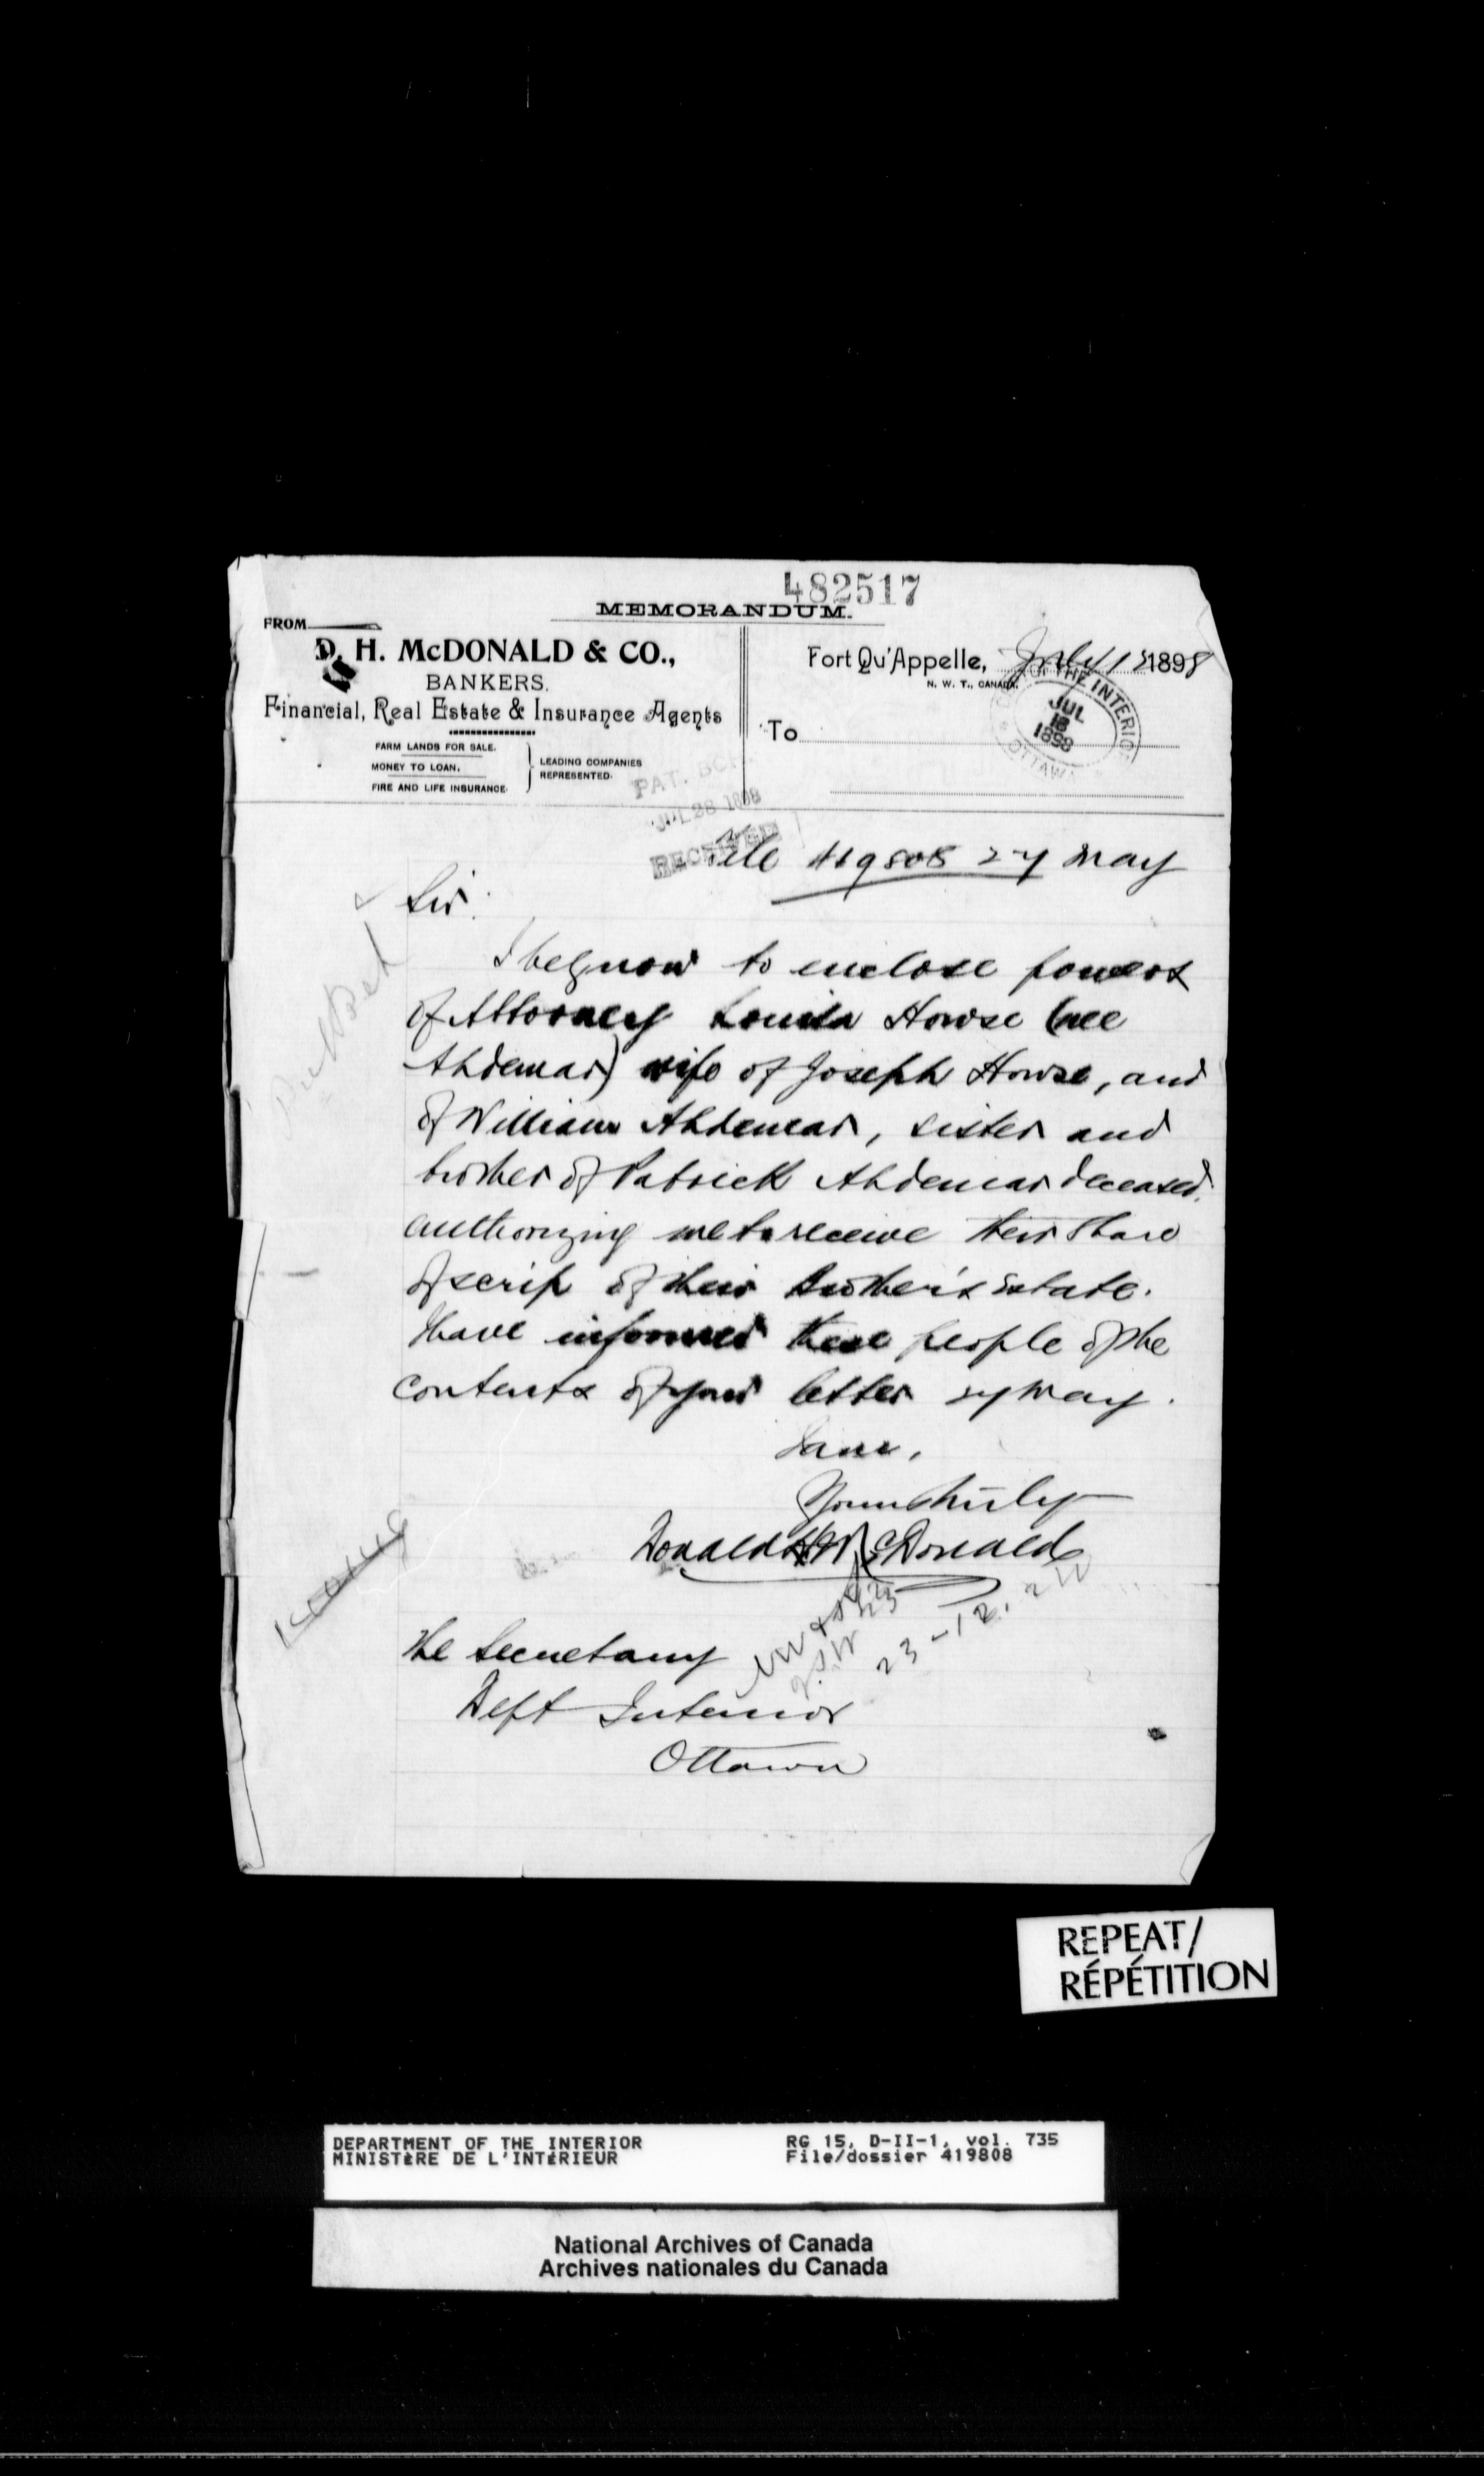 482517
MEMORANDUM.
FROM
D. H. McDONALD & CO.,
BANKERS.
Financial, Real Estate & Insurance Agents
FARM LANDS FOR SALE.
MONEY TO LOAN.
FIRE AND LIFE INSURANCE.
LEADING COMPANIES
REPRESENTED.
Fort Qu'Appelle, July 1898
N. W. T., CANADA.
To
OF THE INTERIOR
JUL
18
1898
OTTAWA
PAT.
JUL 28 1898
RECEIVED
File 419808 27 May
Sir:
I beg now to enclose powers
of Attorney Louisa Howse (nee
Ahdemar) wife of Joseph Howse, and
of William Ahdemar, sister and
brother of Patrick Ahdemar deceased.
authorizing me to receive their share
of scrip of their brother's Estate.
I have informed these people of the
contents of your letter 27 May.
I am,
Yours truly
Donald H McDonald
23-12.
The Secretary
Dept Interior
Ottawa
REPEAT/
RÉPÉTITION
DEPARTMENT OF THE INTERIOR
MINISTÈRE DE L'INTÉRIEUR
RG 15, D-II-1, vol. 735
File/dossier 419808
National Archives of Canada
Archives nationales du Canada